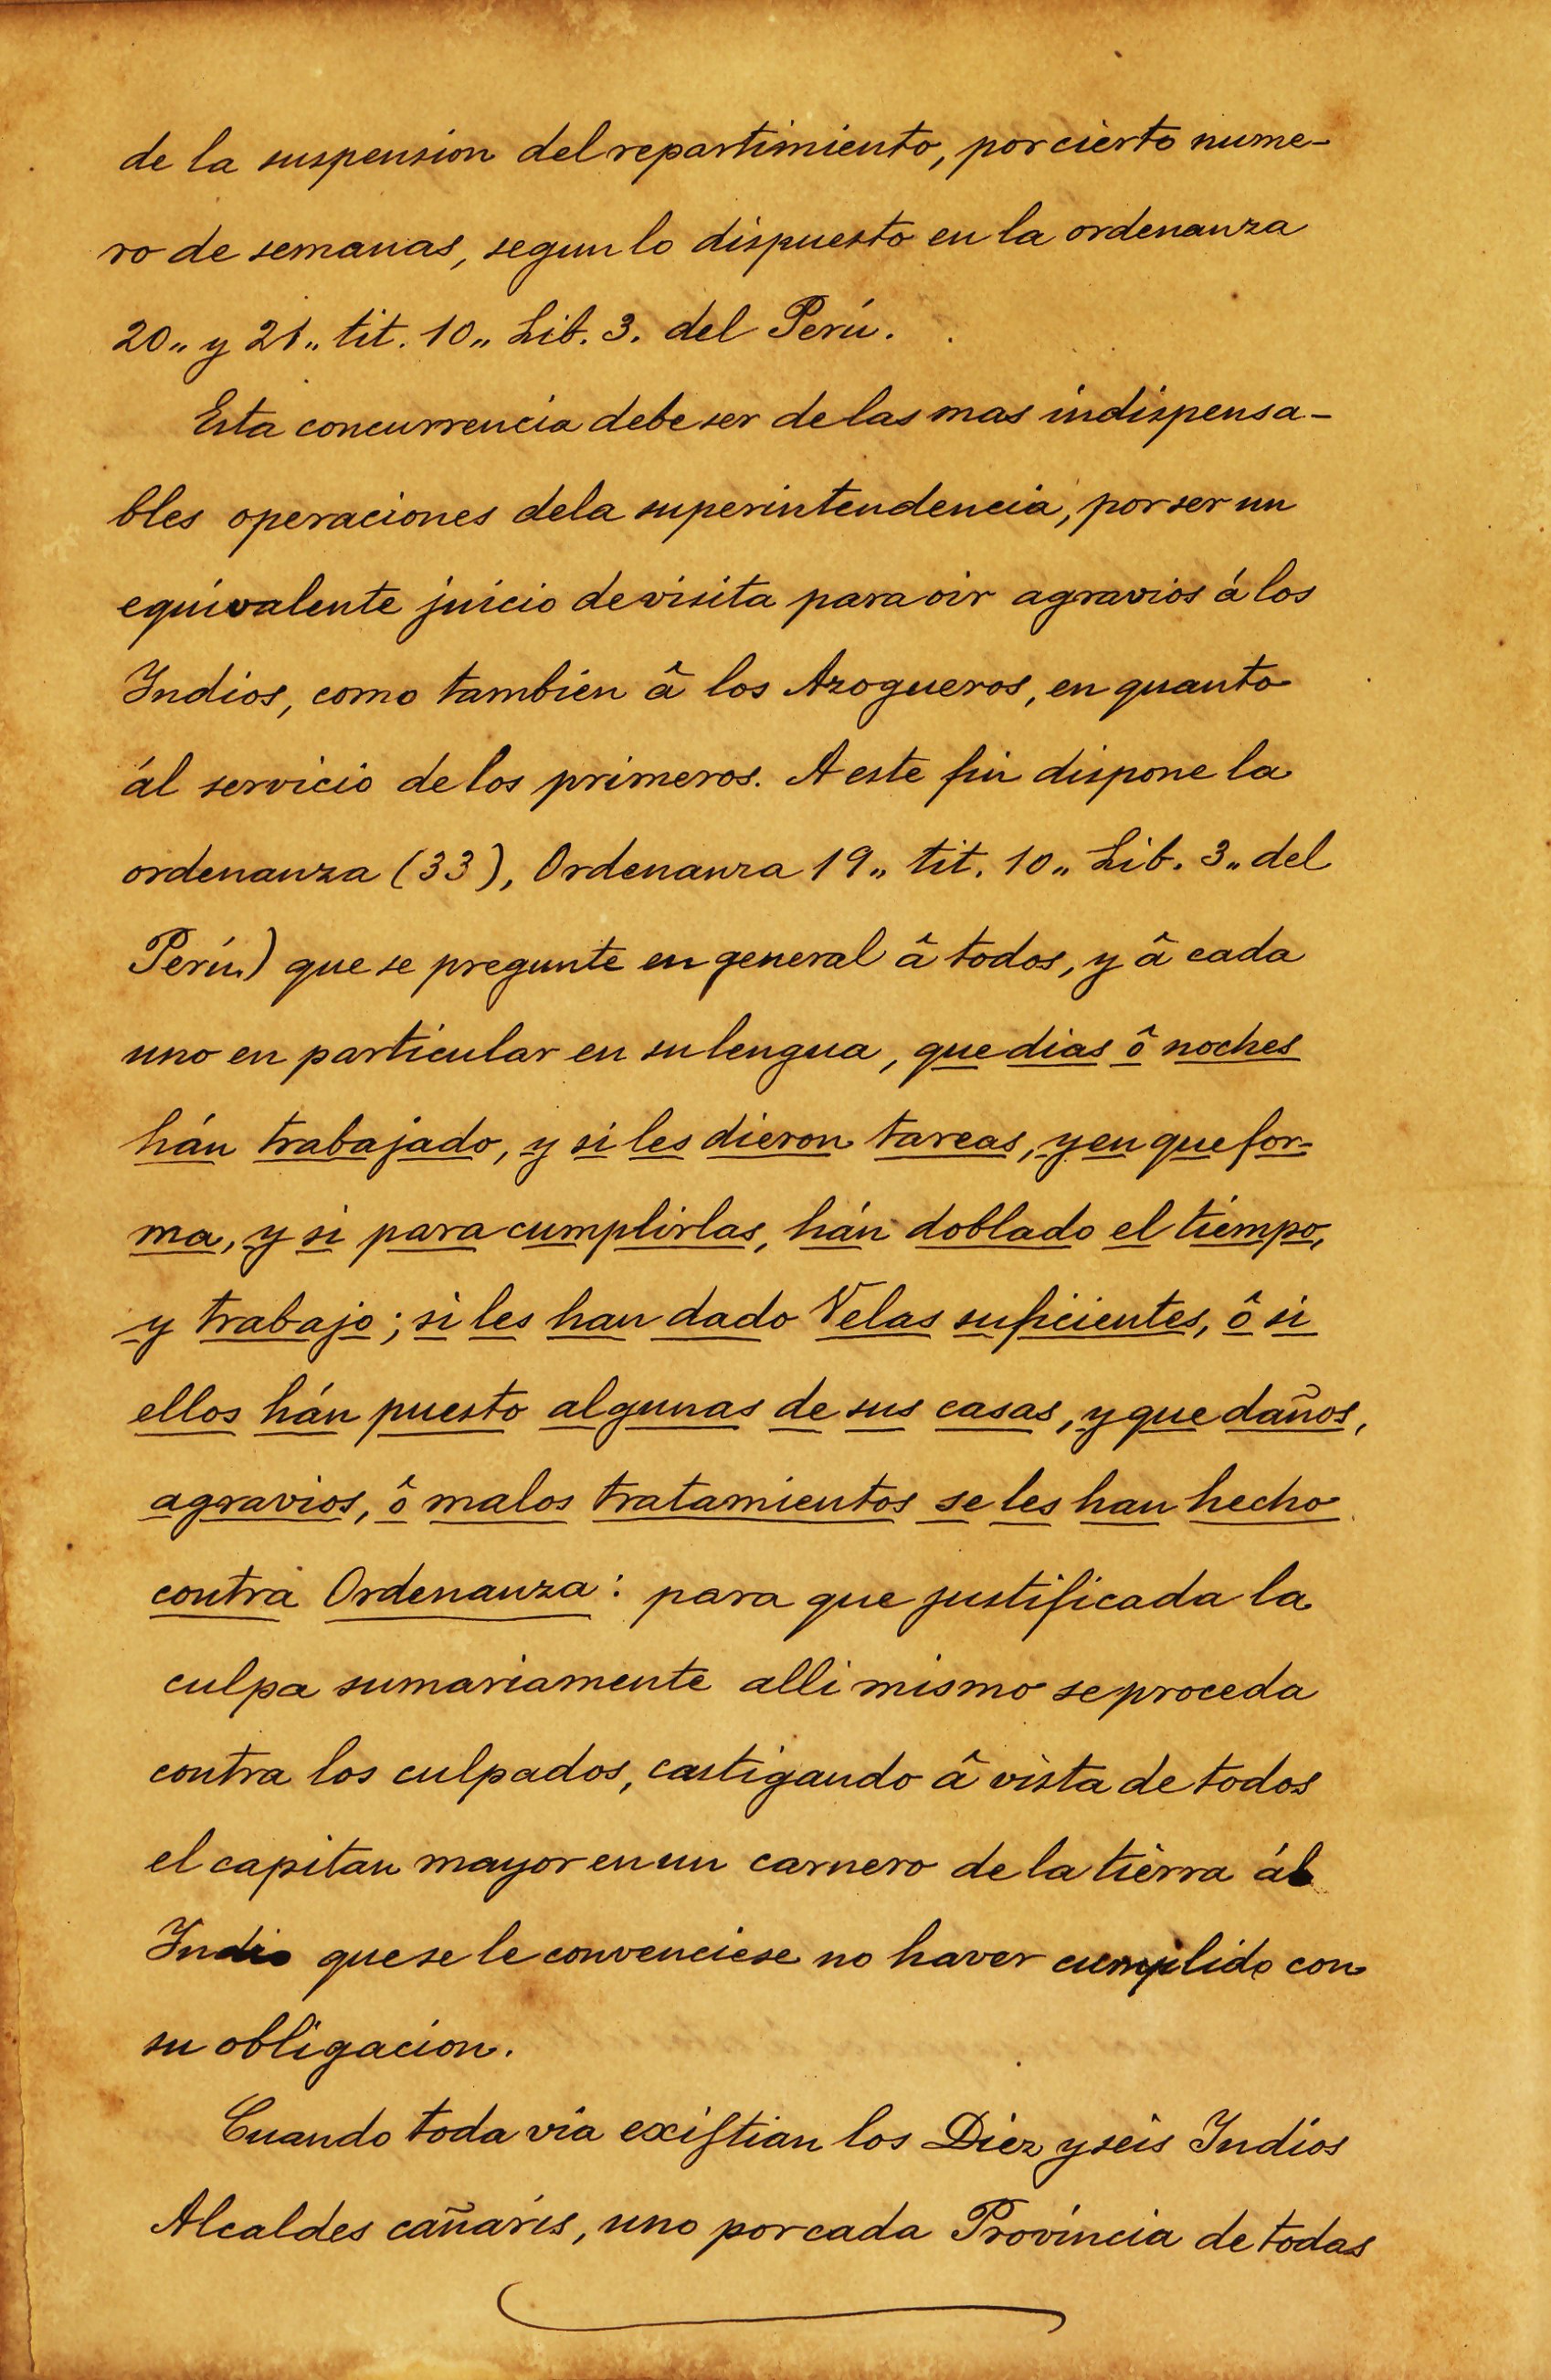 de la suspension del repartimiento, por cierto nume-
ro de semanas, segun lo dispuesto en la ordenanza
20.. y 21.. tit. 10.. Lib. 3. del Perú.
Esta concurrencia debe ser de las mas indispensa-
bles operaciones de la superintendencia, por ser un
equivalente juicio de visita para oir agravios á los
Indios, como tambien â los Azogueros, en quanto
ál servicio de los primeros. A este fin dispone la
ordenanza (33), Ordenanza 19.. tit. 10.. Lib. 3.. del
Perú.) que se pregunte en general â todos, y â cada
uno en particular en su lengua, que dias ô noches
hán trabajado, y si les dieron tareas, y en que for-
ma, y si para cumplirlas, hán doblado el tiempo,
y trabajo; si les han dado Velas suficientes, ô si
ellos hán puesto algunas de sus casas, y que daños,
agravios, ô malos tratamientos se les han hecho
contra Ordenanza: para que justificada la
culpa sumariamente alli mismo se proceda
contra los culpados, castigando â vista de todos
el capitan mayor en un carnero de la tierra ál
Indio que se le convenciese no haver cumplido con
su obligacion.
Cuando toda via exiſtian los Diez y seis Indios
Alcaldes cañaris, uno por cada Provincia de todas